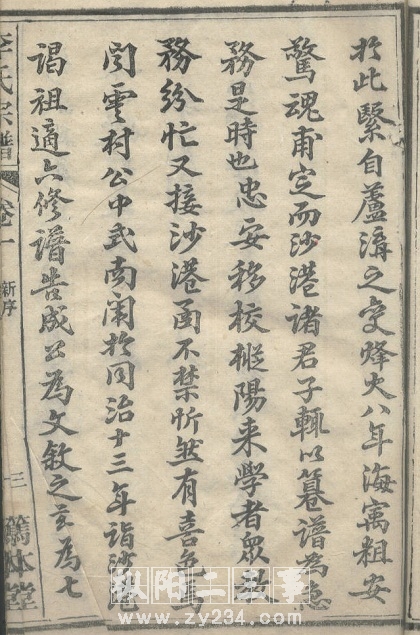 於此緊自蘆溝之变烽火八年海寓粗安
驚魂甫定而沙港諸君子輒以纂譜為急
務是時也忠安移校樅陽来學者眾教
務紛忙又接沙港函不禁忻然有喜色焉
閱雲村公中式南闈於同治十三年詣沙港
謁祖適六修譜告成公為文敘之玆為七
李氏宗譜
卷一
新序
三
篤本堂
枞阳二三事
www.zy234.com